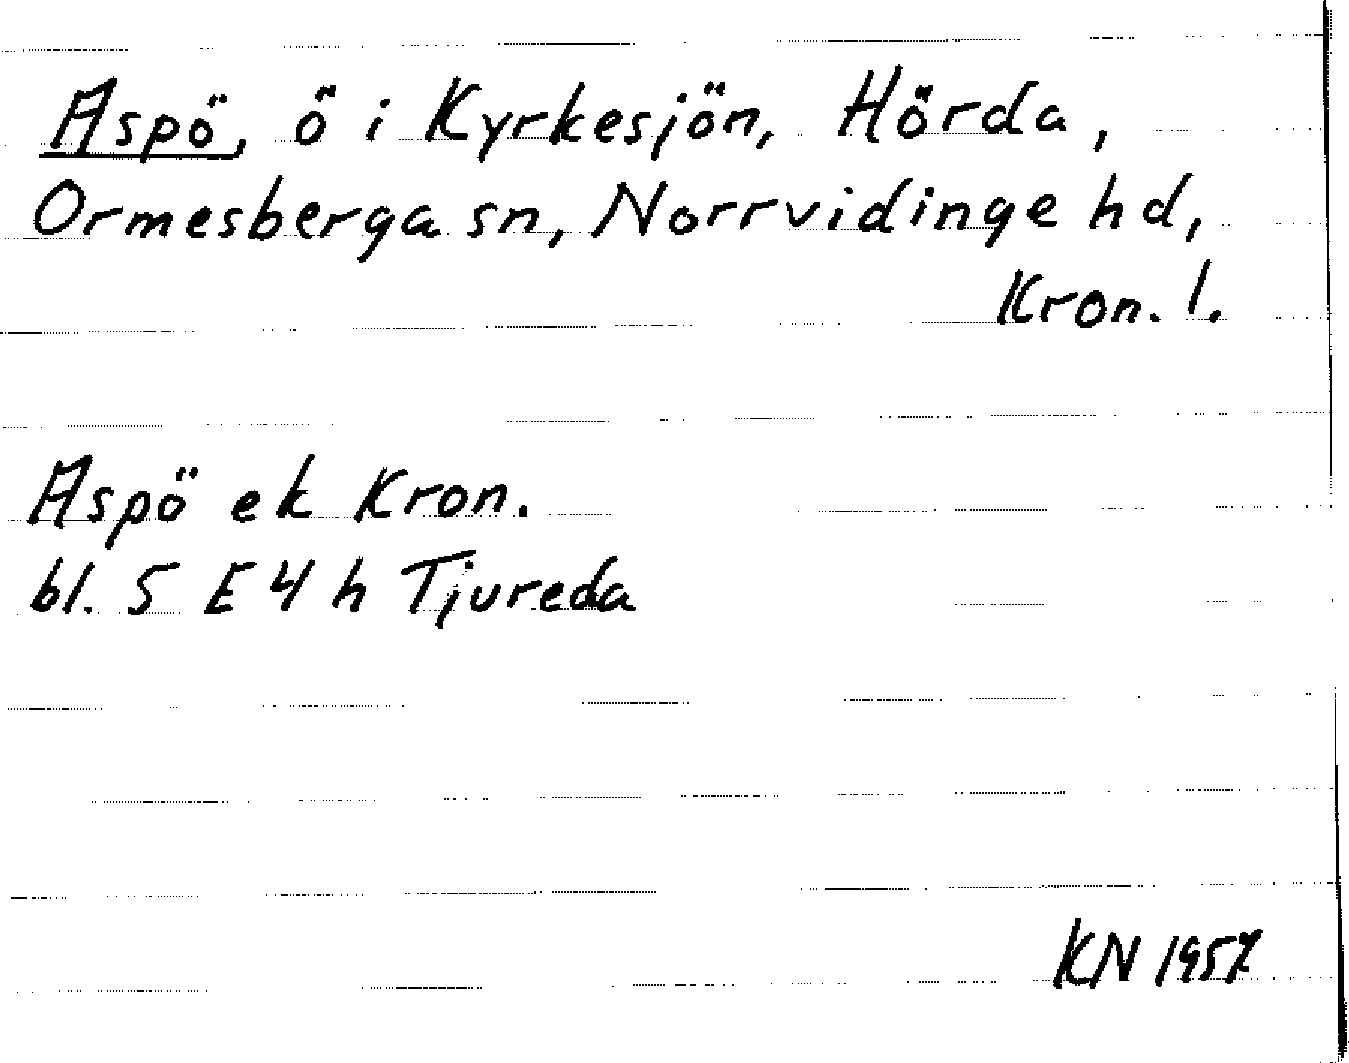 Aspö, ö i Kyrkesjön, Hörda,
Ormesberga sn, Norrvidinge hd,
Kron. l.
Aspö ek Kron.
bl. 5 E 4 h Tjureda
KN 1957